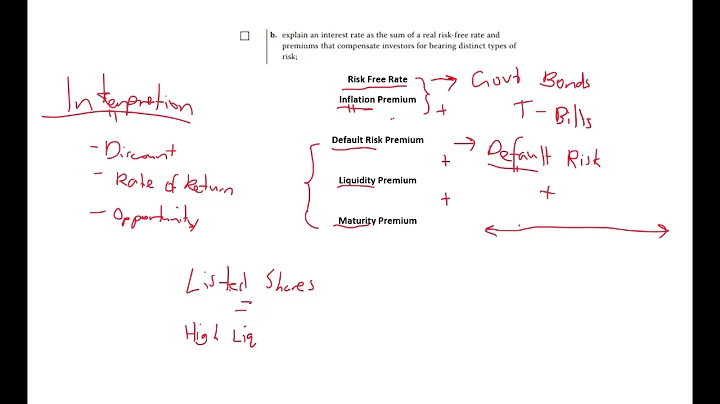 b. explain an interest rate as the sum of a real risk-free rate and
premiums that compensate investors for bearing distinct types of
risk;
Interpretion
- Discount
- Rate of Return
- Opportunity
Risk Free Rate
Inflation Premium
+
Default Risk Premium
+
Liquidity Premium
+
Maturity Premium
Govt Bonds
T-Bills
Default Risk
+
Listed Shares
=
High Liq